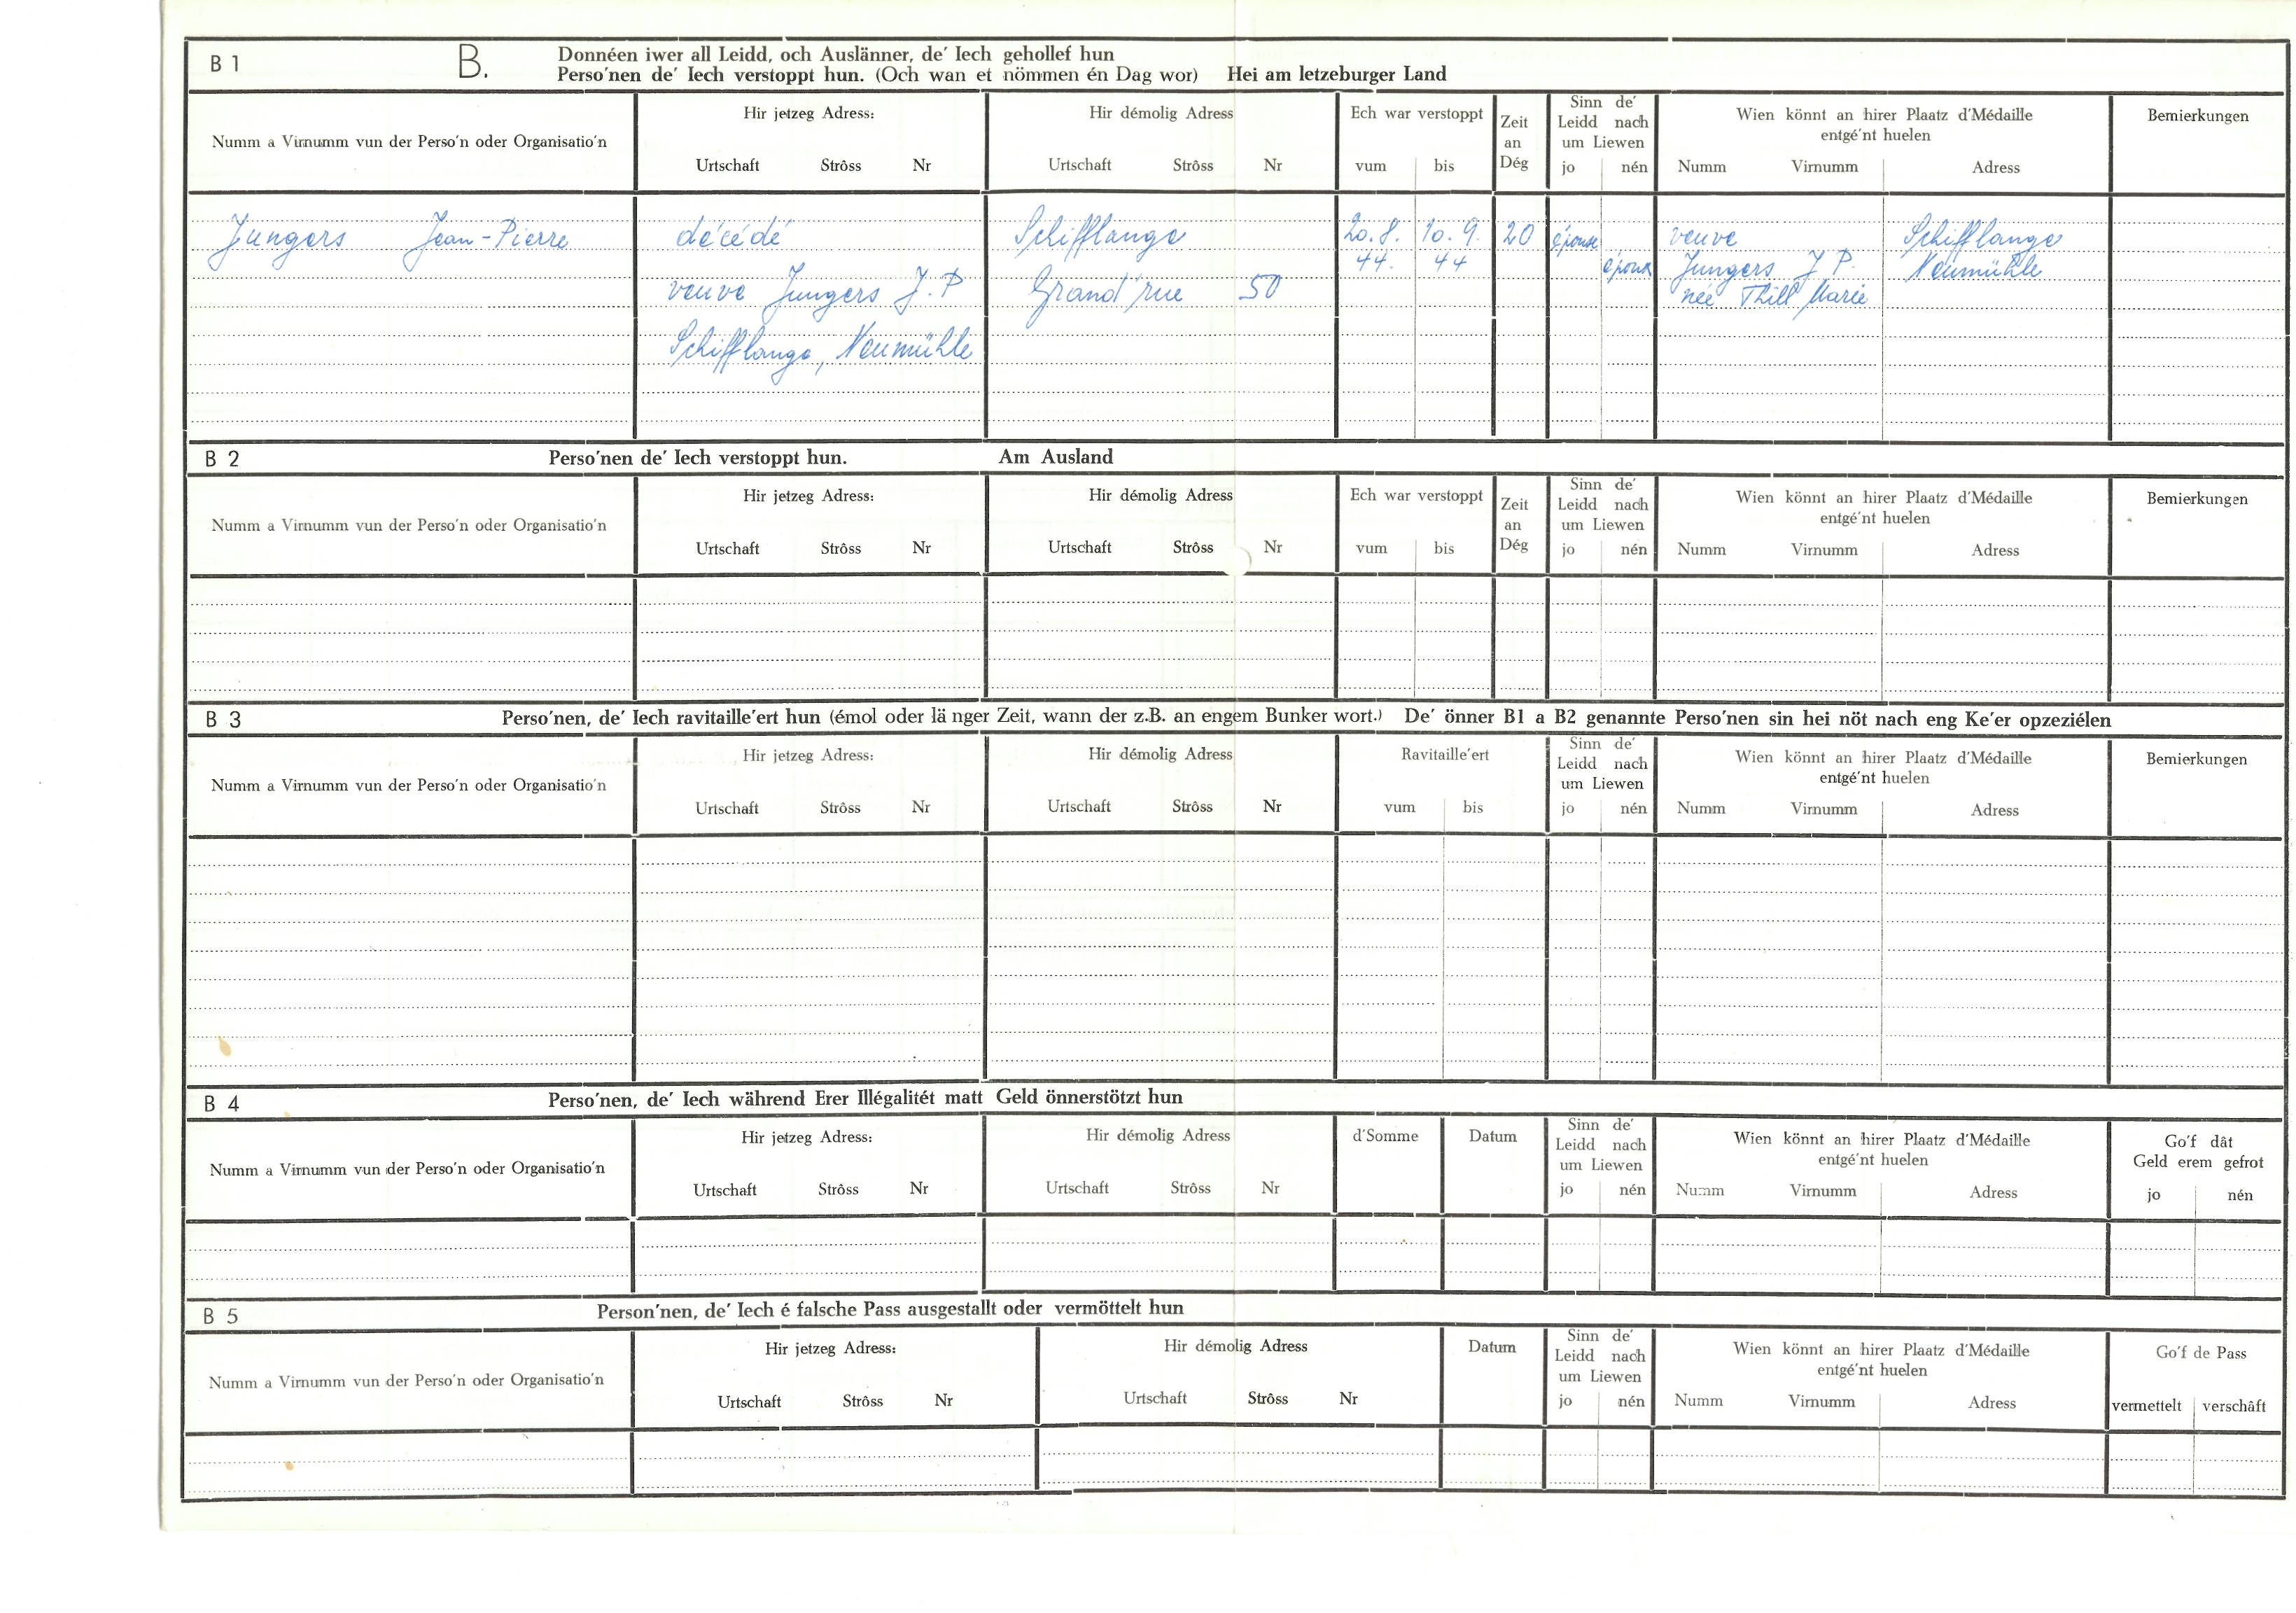 B 1 B. Donnéen iwer all Leidd, och Auslänner, de′ Iech gehollef hun
Perso′nen de′ Iech verstoppt hun. (Och wan et nömmen én Dag wor) Hei am letzeburger Land
Numm a Virnumm vun der Perso′n oder Organisatio′n
Hir jetzeg Adress:
Urtschaft Strôss Nr
Hir démolig Adress
Urtschaft Strôss Nr
Ech war verstoppt
vum bis
Zeit
an
Dég
Sinn de′
Leidd nach
um Liewen
jo nén
Wien könnt an hirer Plaatz d′Médaille
entgé′nt huelen
Numm Virnumm Adress
Bemierkungen
Jungers Jean-Pierre
décédé
veuve Jungers J. P
Schifflange, Neumühle
Schifflange
Grand′rue 50
20. 8. 44.
10. 9. 44
20
épouse
époux
veuve
Jungers J P.
née Thill Marie
Schifflange
Neumühle
B 2 Perso′nen de′ Iech verstoppt hun. Am Ausland
Numm a Virnumm vun der Perso′n oder Organisatio′n
Hir jetzeg Adress:
Urtschaft Strôss Nr
Hir démolig Adress
Urtschaft Strôss Nr
Ech war verstoppt
vum bis
Zeit
an
Dég
Sinn de′
Leidd nach
um Liewen
jo nén
Wien könnt an hirer Plaatz d′Médaille
entgé′nt huelen
Numm Virnumm Adress
Bemierkungen
B 3 Perso′nen, de′ Iech ravitaille′ert hun (émol oder lä nger Zeit, wann der z.B. an engem Bunker wort.) De′ önner B1 a B2 genannte Perso′nen sin hei nöt nach eng Ke′er opzeziélen
Numm a Virnumm vun der Perso′n oder Organisatio′n
Hir jetzeg Adress:
Urtschaft Strôss Nr
Hir démolig Adress
Urtschaft Strôss Nr
Ravitaille′ert
vum bis
Sinn de′
Leidd nach
um Liewen
jo nén
Wien könnt an hirer Plaatz d′Médaille
entgé′nt huelen
Numm Virnumm Adress
Bemierkungen
B 4 Perso′nen, de′ Iech während Erer Illégalitét matt Geld önnerstötzt hun
Numm a Virnumm vun der Perso′n oder Organisatio′n
Hir jetzeg Adress:
Urtschaft Strôss Nr
Hir démolig Adress
Urtschaft Strôss Nr
d′Somme
Datum
Sinn de′
Leidd nach
um Liewen
jo nén
Wien könnt an hirer Plaatz d′Médaille
entgé′nt huelen
Numm Virnumm Adress
Go′f dât
Geld erem gefrot
jo nén
B 5 Person′nen, de′ Iech é falsche Pass ausgestallt oder vermöttelt hun
Numm a Virnumm vun der Perso′n oder Organisatio′n
Hir jetzeg Adress:
Urtschaft Strôss Nr
Hir démolig Adress
Urtschaft Strôss Nr
Datum
Sinn de′
Leidd nach
um Liewen
jo nén
Wien könnt an hirer Plaatz d′Médaille
entgé′nt huelen
Numm Virnumm Adress
Go′f de Pass
vermettelt verschâft